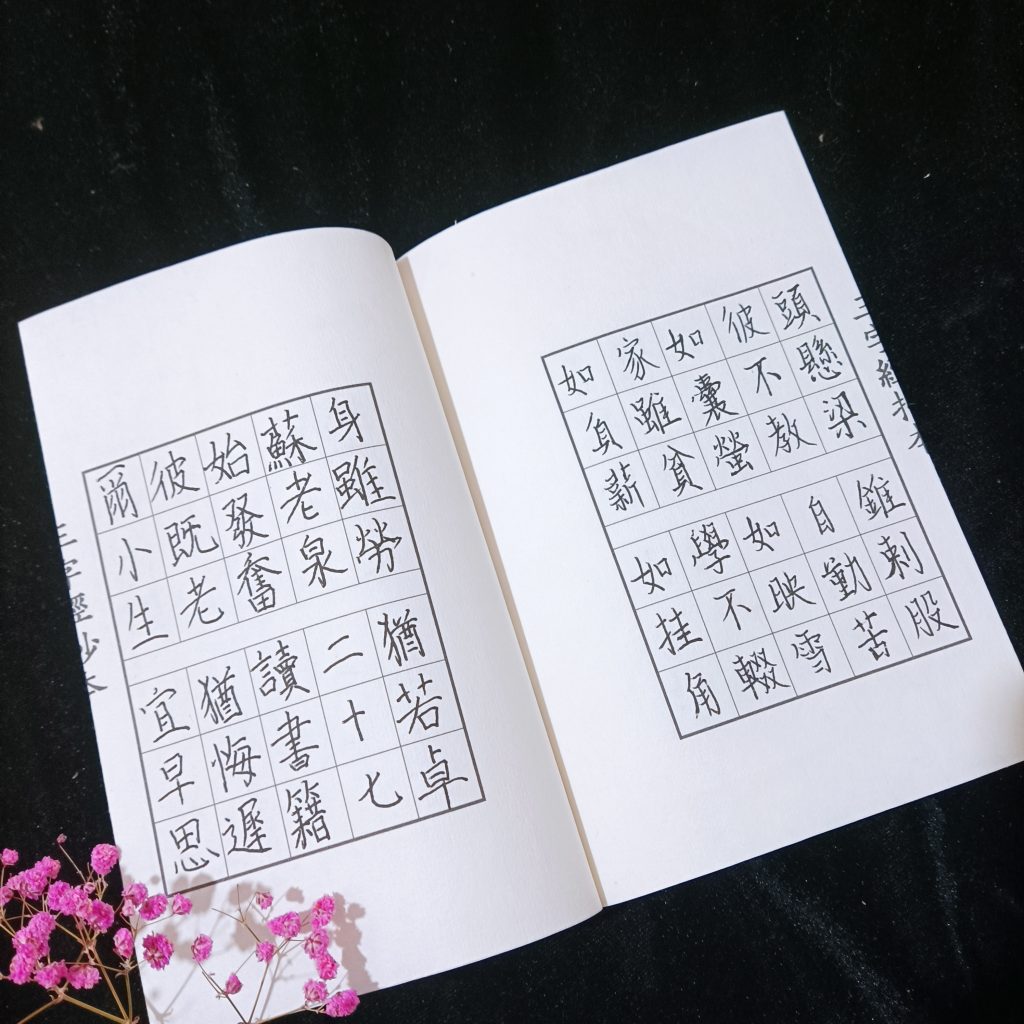 三字經抄本
頭懸梁 錐刺股
彼不教 自動苦
如囊螢 如映雪
家雖貧 學不輟
如負薪 如挂角
身雖勞 猶若卓
蘇老泉 二十七
始發奮 讀書籍
彼既老 猶悔遲
爾小生 宜早思
三字經抄本